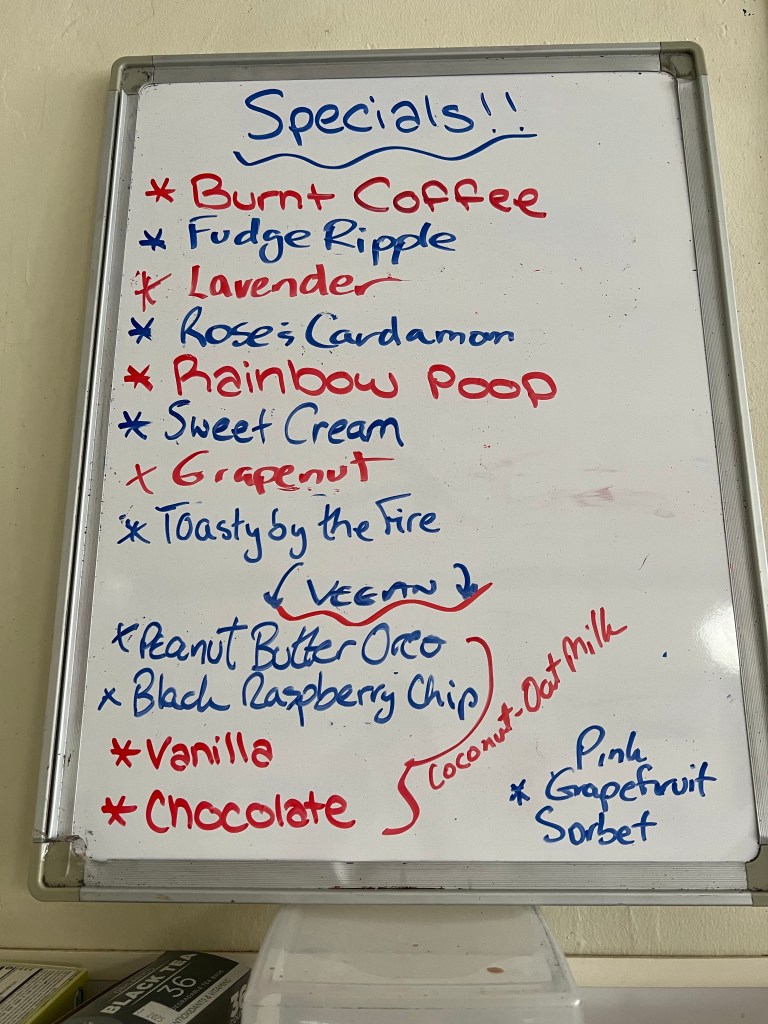 Specials!!
* Burnt Coffee
* Fudge Ripple
* Lavender
* Rose & Cardamon
* Rainbow Poop
* Sweet Cream
x Grapenut
* Toasty by the Fire
VEGAN
x Peanut Butter Oreo
x Black Raspberry Chip
* Vanilla
* Chocolate
Coconut-Oat Milk
Pink
* Grapefruit
Sorbet
BLACK TEA
36